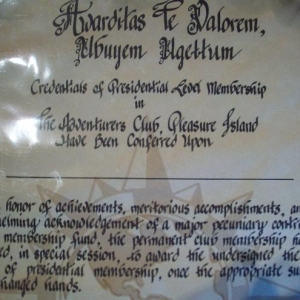 Avarditas Te Valorem,
Ubuyem Ugettum
Credentials of Presidential Level Membership
in
The Adventurers Club, Pleasure Island
Have Been Conferred Upon
honor of achievements, meritorious accomplishments, an
helming acknowledgement of a major pecuniary contri
membership fund, the permanent club membership h
d, in special session, to award the undersigned the
of presidential membership, once the appropriate su
hanged hands.